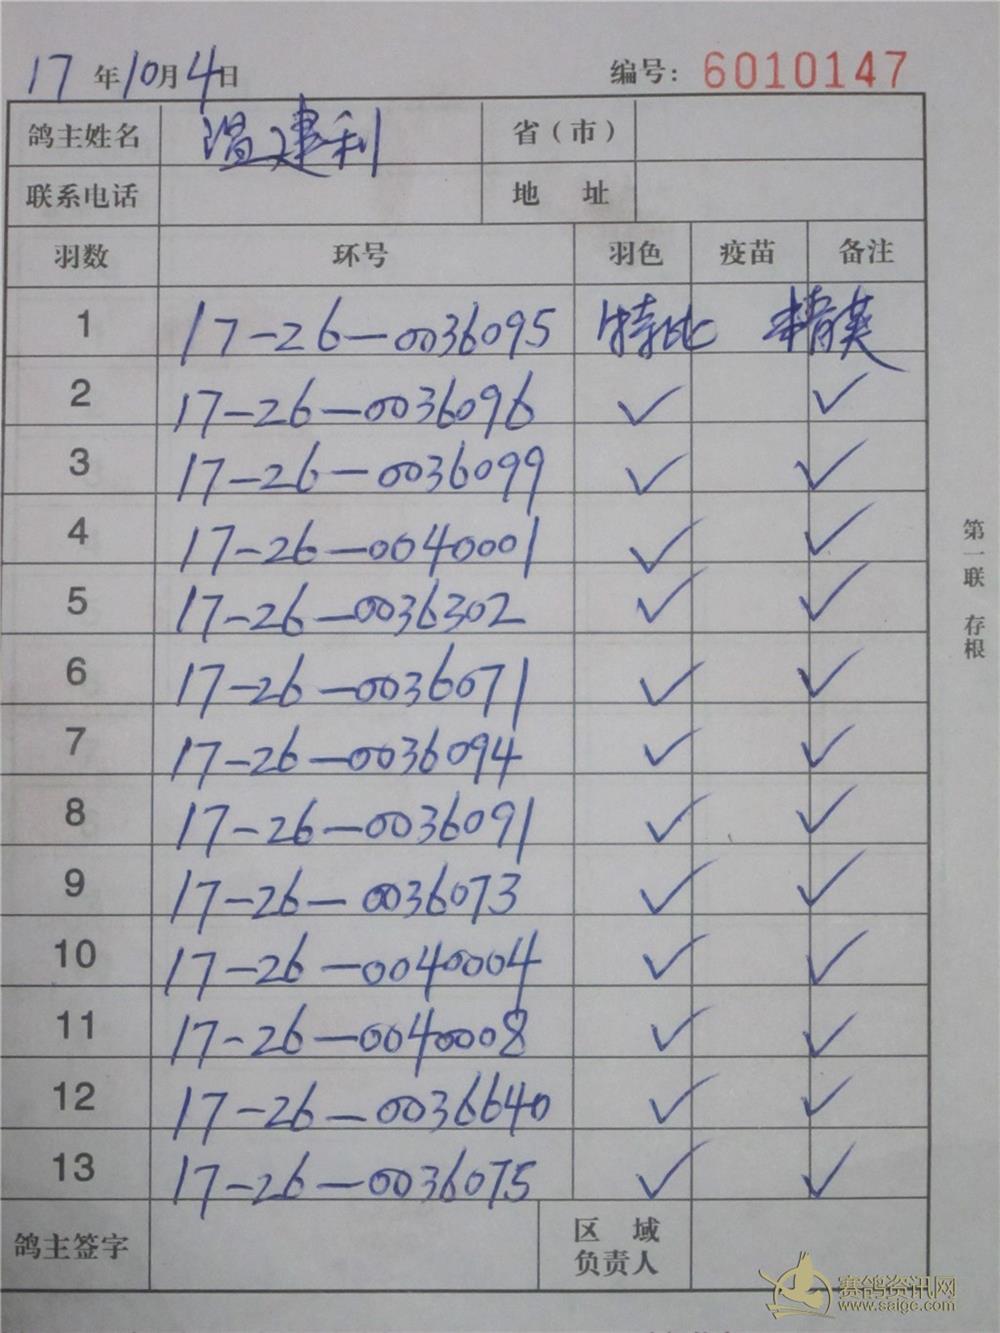 17年10月4日 编号: 6010147
鸽主姓名 温建利 省（市）
联系电话 地 址
羽数 环号 羽色 疫苗 备注
1 17-26-0036095 特比 精英
2 17-26-0036096 ✓ ✓
3 17-26-0036099 ✓ ✓
4 17-26-0040001 ✓ ✓
5 17-26-0036302 ✓ ✓
6 17-26-0036071 ✓ ✓
7 17-26-0036094 ✓ ✓
8 17-26-0036091 ✓ ✓
9 17-26-0036073 ✓ ✓
10 17-26-0040004 ✓ ✓
11 17-26-0040008 ✓ ✓
12 17-26-0036640 ✓ ✓
13 17-26-0036075 ✓ ✓
鸽主签字 区 域
负责人
第一联 存根
赛鸽资讯网
www.saigc.com